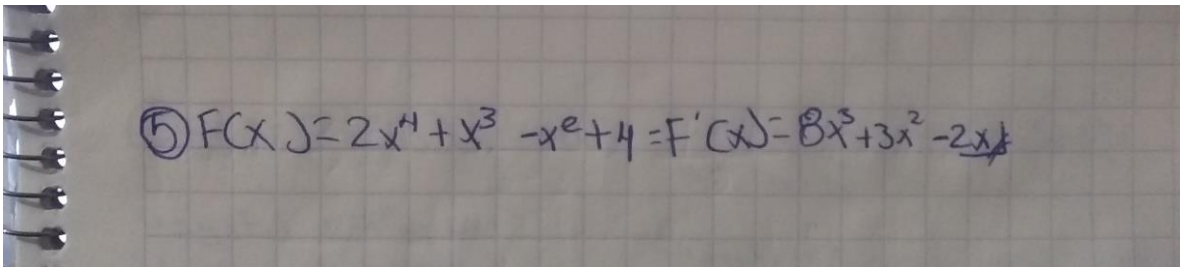 ⑤ F(x)=2x⁴+x³-x²+4=F'(x)=8x³+3x²-2x